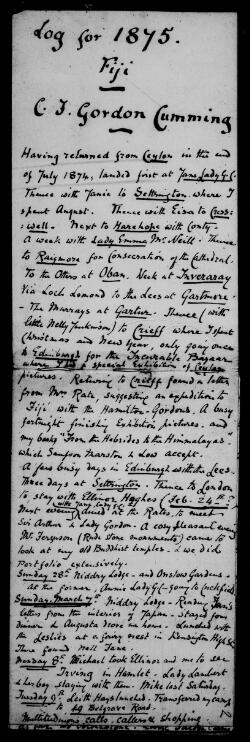 Log for 1875.
Fiji
C. F. Gordon Cumming
Having returned from Ceylon in the end
of July 1874, landed first at Jane, Lady G.C.
Thence with Janie to Settrington, where I
spent August. Thence with Eisa to Cress-
well - Next to Harehope with Conty -
A week with Lady Emma McNeill. Thence
to Raigmore for Consecration of the Cathedral.
To the Others at Oban. Week at Inveraray
via Loch Lomond to the Lees at Gartmore.
- The Murrays at Gartur. Thence (with
little Nelly Jenkinson) to Crieff where I spent
Christmas and New Year, only going once
to Edinburgh for the Incurable Bazaar
where I had a special Exhibition of Ceylon
pictures. Returning to Crieff found a letter
from Mrs Rate, suggesting an expedition to
Fiji with the Hamilton-Gordons. A busy
fortnight finishing Exhibition pictures, and
my book, "From the Hebrides to the Himmalayas"
which Sampson Marston & Low accept.
A few busy days in Edinburgh with the Lees.
Three days at Settrington. Thence to London
to stay with Ellinor Hughes (Feb. 24th?
with Jane, Lady G.C.
Next evening dined with the Rates, to meet
Sir Arthur & Lady Gordon. A very pleasant evening
Mr Ferguson (Rude Stone monuments) came to
look at my old Buddhist temples - & we did
Portfolio extensively.
Sunday 28th Niddry Lodge - and Onslow Gardens -
at the former, Annie Lady G.C. going to
Sunday, March 7th Niddry Lodge - Reading Jane's
letters from the interior of Japan - stayed for
dinner in Augusta's room. Lunched with
the Leslies at a living nest in Kensington High St.
There found Nell Jane.
Monday 8th Michael took Ellinor and me to see
Irving in Hamlet. Lady Lambert
& her boy staying with them. Mike last Saturday.
Tuesday 9th Leith Hay lunched. Transferred my camp
to 49 Belgrave Road.
Multitudinous calls, callers & shopping.